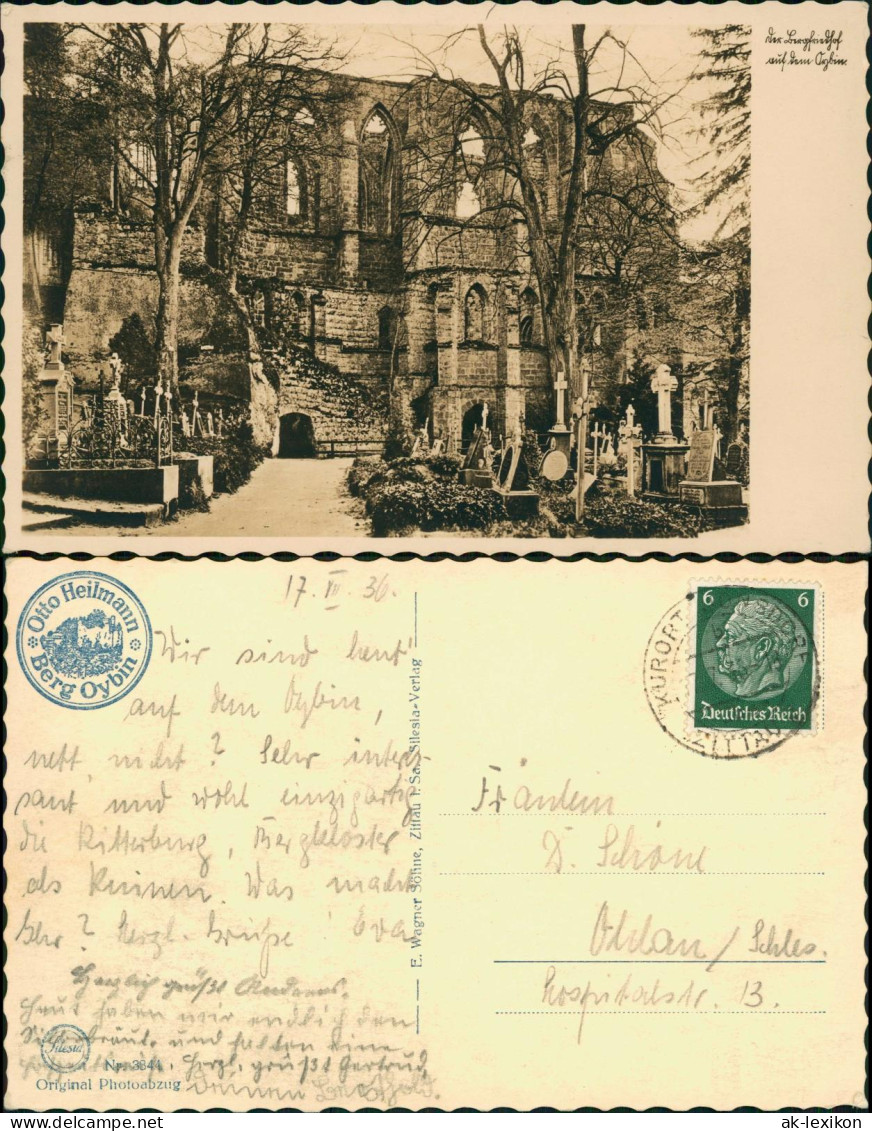 Der Bergfriedhof
auf dem Oybin.
Otto Heilmann
Berg Oybin
17. III. 36.
Wir sind heut'
auf dem Oybin,
nett, nicht? Sehr interes-
sant und wohl einzigartig
die Ritterburg, Bergkloster
als Ruinen. Was macht
Ihr? Herzl. Grüße Eva
Herzlich grüßt Andreas.
Heut haben wir endlich den
und halten eine
Herzl. grüßt Gertrud,
Deinen
Silesia
Nr. 3344
Original Photoabzug
E. Wagner Söhne, Zittau i. Sa. Silesia-Verlag
KURORT
ZITTAU
6 6
Deutsches Reich
Fräulein
D. Schöne
Ohlau / Schles.
Hospitalstr. 13.
ak-lexikon